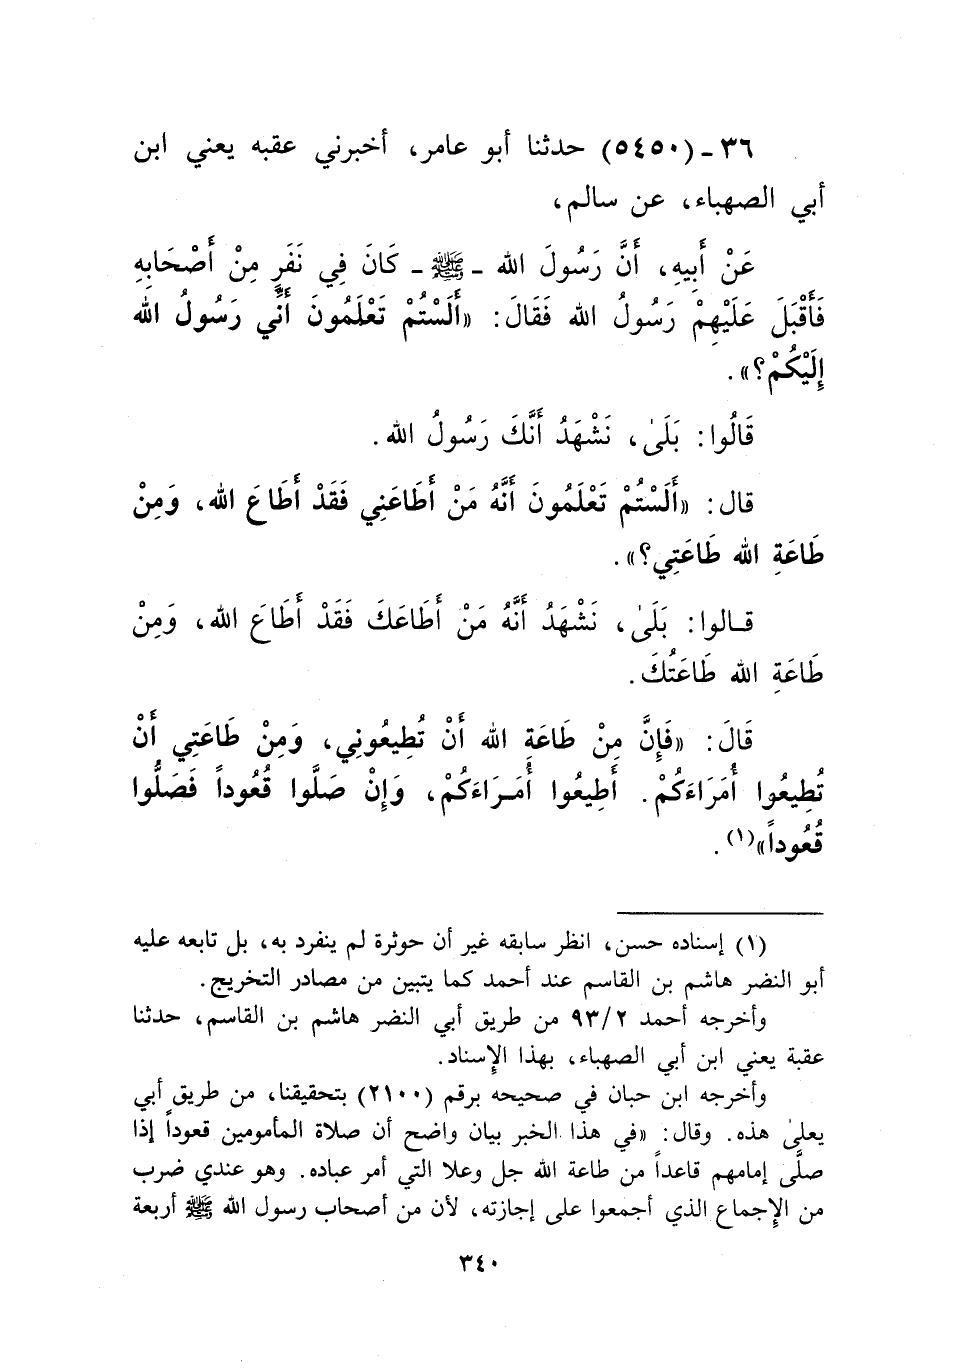 ٣٦ ـ (٥٤٥٠) حدثنا أبو عامر، أخبرني عقبه يعني ابن
أبي الصهباء، عن سالم،
عَنْ أَبِيهِ، أَنَّ رَسُولَ الله ـ ﷺ ـ كَانَ فِي نَفَرٍ مِنْ أَصْحَابِهِ
فَأَقْبَلَ عَلَيْهِمْ رَسُولُ الله فَقَالَ: «أَلَسْتُمْ تَعْلَمُونَ أَنِّي رَسُولُ الله
إِلَيْكُمْ؟».
قَالُوا: بَلَىٰ، نَشْهَدُ أَنَّكَ رَسُولُ الله.
قال: «أَلَسْتُمْ تَعْلَمُونَ أَنَّهُ مَنْ أَطَاعَنِي فَقَدْ أَطَاعَ الله، وَمِنْ
طَاعَةِ الله طَاعَتِي؟».
قـالوا: بَلَىٰ، نَشْهَدُ أَنَّهُ مَنْ أَطَاعَكَ فَقَدْ أَطَاعَ الله، وَمِنْ
طَاعَةِ الله طَاعَتُكَ.
قَالَ: «فَإِنَّ مِنْ طَاعَةِ الله أَنْ تُطِيعُونِي، وَمِنْ طَاعَتِي أَنْ
تُطِيعُوا أُمَرَاءَكُمْ. أَطِيعُوا أُمَـرَاءَكُمْ، وَإِنْ صَلَّوا قُعُوداً فَصَلُّوا
قُعُوداً»(١).
(١) إسناده حسن، انظر سابقه غير أن حوثرة لم ينفرد به، بل تابعه عليه
أبو النضر هاشم بن القاسم عند أحمد كما يتبين من مصادر التخريج.
وأخرجه أحمد ٩٣/٢ من طريق أبي النضر هاشم بن القاسم، حدثنا
عقبة يعني ابن أبي الصهباء، بهذا الإسناد.
وأخرجه ابن حبان في صحيحه برقم (٢١٠٠) بتحقيقنا، من طريق أبي
يعلىٰ هذه. وقال: «في هذا الخبر بيان واضح أن صلاة المأمومين قعوداً إذا
صلَّى إمامهم قاعداً من طاعة الله جل وعلا التي أمر عباده. وهو عندي ضرب
من الإجماع الذي أجمعوا على إجازته، لأن من أصحاب رسول الله ﷺ أربعة
٣٤٠